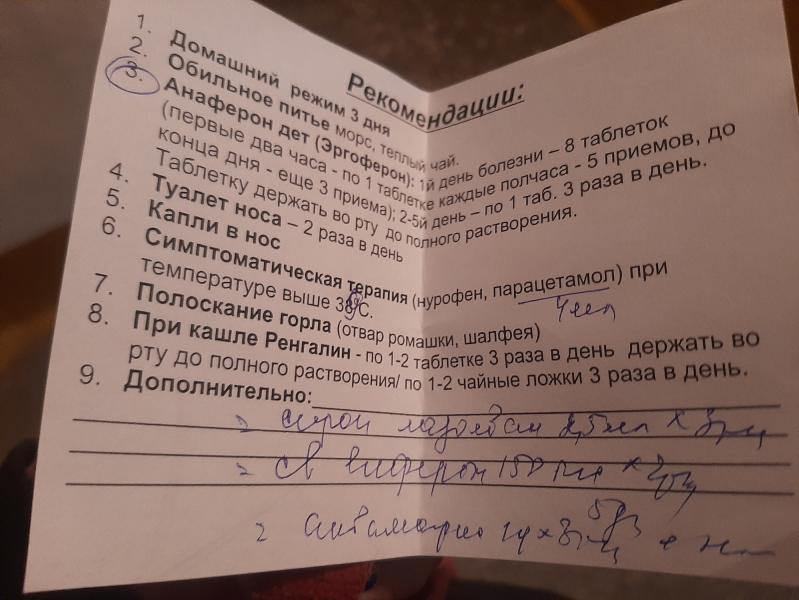 Рекомендации:
1. Домашний режим 3 дня
2. Обильное питье морс, теплый чай.
3. Анаферон дет (Эргоферон): 1й день болезни – 8 таблеток
(первые два часа - по 1 таблетке каждые полчаса - 5 приемов, до
конца дня - еще 3 приема); 2-5й день – по 1 таб. 3 раза в день.
Таблетку держать во рту до полного растворения.
4. Туалет носа – 2 раза в день
5. Капли в нос
6. Симптоматическая терапия (нурофен, парацетамол) при
температуре выше 38°С.
7. Полоскание горла (отвар ромашки, шалфея)
8. При кашле Ренгалин - по 1-2 таблетке 3 раза в день держать во
рту до полного растворения/ по 1-2 чайные ложки 3 раза в день.
9. Дополнительно:
сироп
св виферон 150